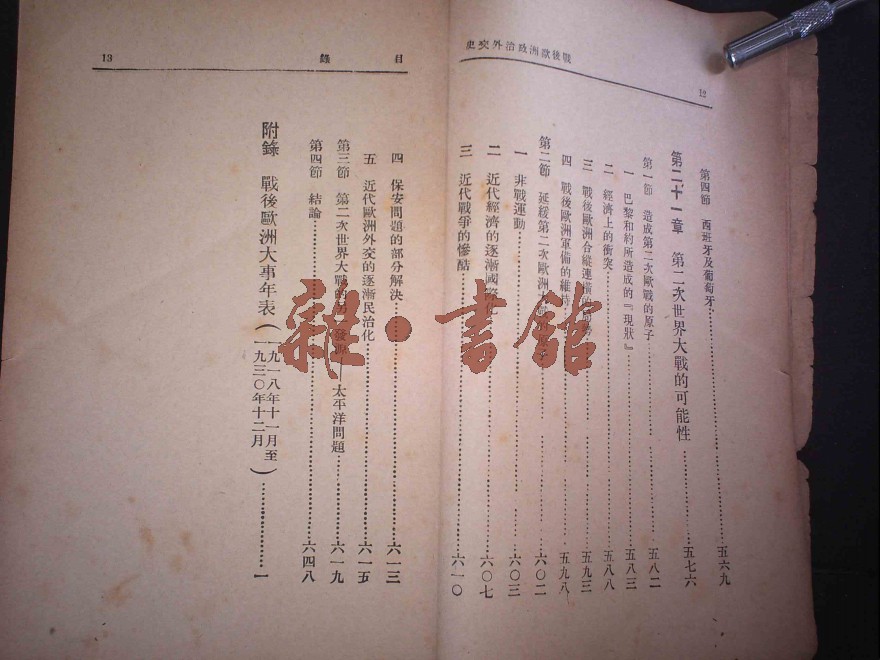 戰後歐洲政治外交史
12
第四節 西班牙及葡萄牙 五六九
第二十一章 第二次世界大戰的可能性 五七六
第一節 造成第二次歐戰的原子 五八二
一 巴黎和約所造成的『現狀』 五八三
二 經濟上的衝突 五八八
三 戰後歐洲合縱連橫的 五九三
四 戰後歐洲軍備的維持 五九八
第二節 延緩第二次歐洲 六〇二
一 非戰運動 六〇三
二 近代經濟的逐漸國際化 六〇七
三 近代戰爭的慘酷 六一〇
目錄
13
四 保安問題的部分解決 六一三
五 近代歐洲外交的逐漸民治化 六一五
第三節 第二次世界大戰的 發源——太平洋問題 六一九
第四節 結論 六四八
附錄 戰後歐洲大事年表(一九一八年十一月至一九三〇年十二月) 一
雜·書館